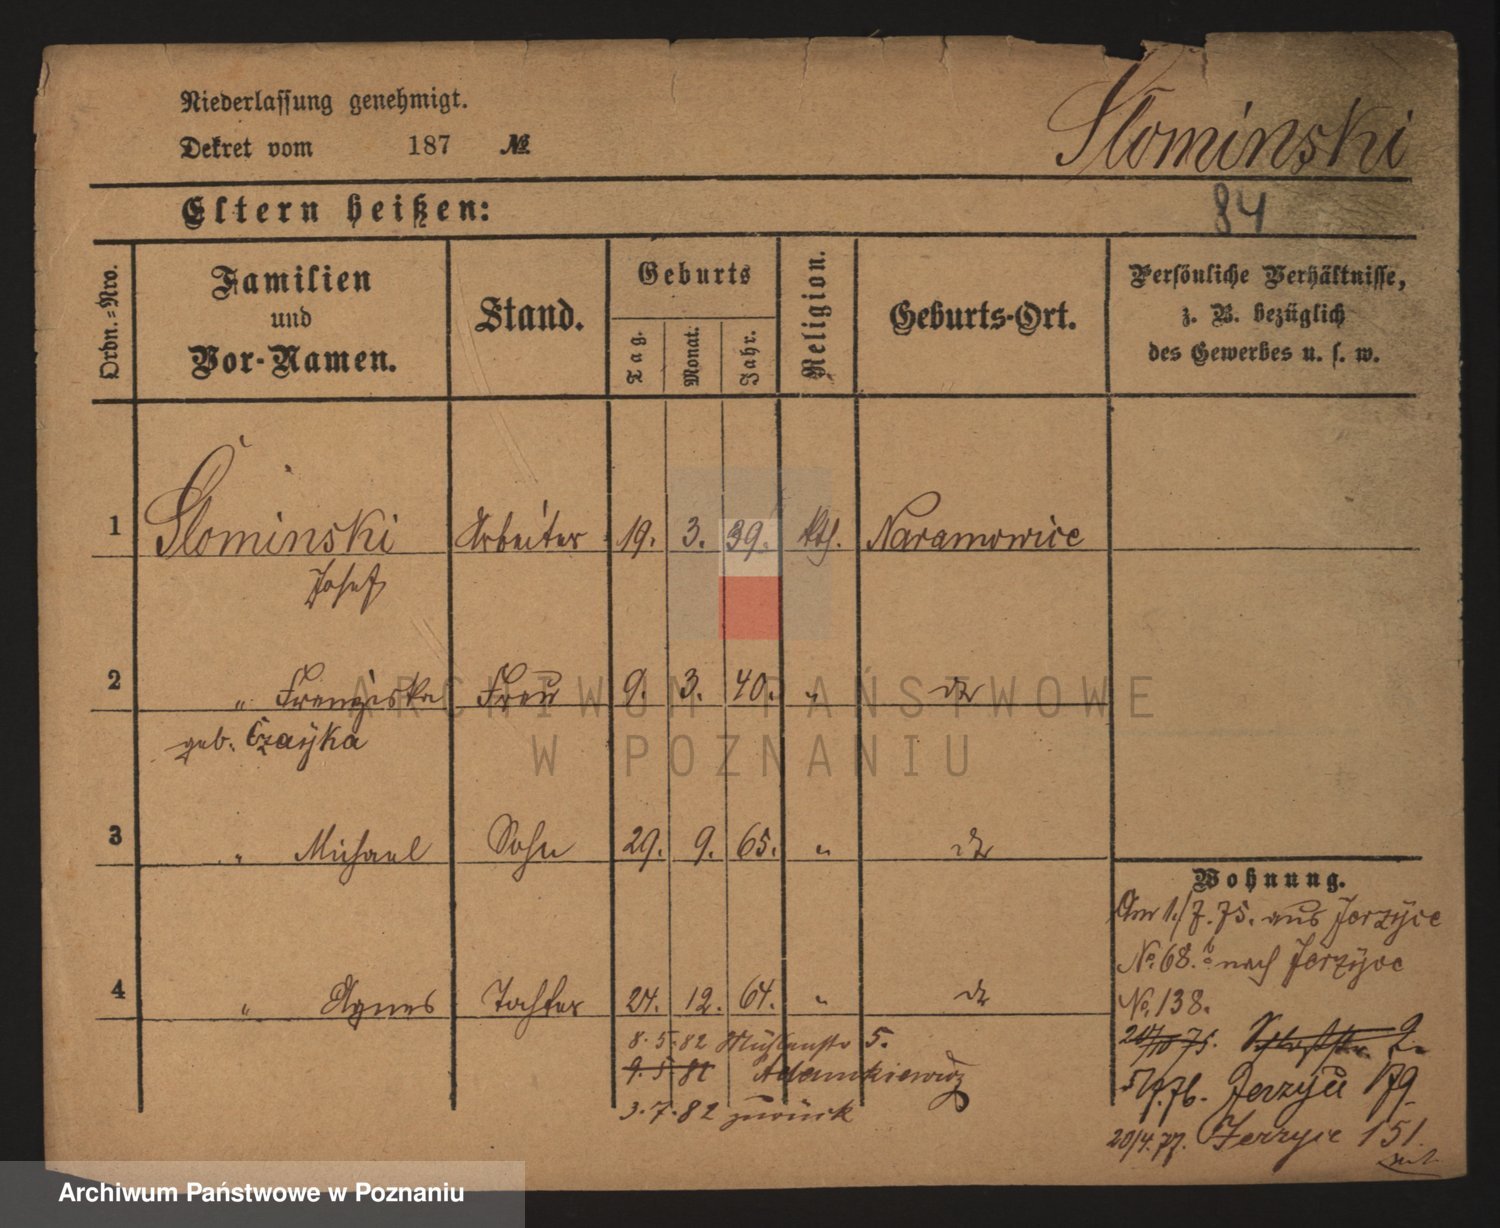 Niederlassung genehmigt.
Dekret vom 187 №
Słominski
84
Eltern heißen:
Ordn.-Nro.
Familien
und
Vor-Namen.
Stand.
Geburts
Tag.
Monat.
Jahr.
Religion.
Geburts-Ort.
Persönliche Verhältnisse,
z. B. bezüglich
des Gewerbes u. s. w.
1 Słominski Arbeiter 19. 3. 39. Kth. Naramowice
Josef
2 " Franziska Frau 9. 3. 40. " do
geb. Czayka
3 " Michael Sohn 29. 9. 65. " do
4 " Agnes Tochter 24. 12. 64. " do
Wohnung.
Am 1./7. 75. aus Jerzyce
No. 68. nach Jerzyce
No. 138.
20/10 75.
5/7. 76. Jerzyce 79.
20/4. 77. Jerzyce 151.
8. 5. 82 Mühlenstr 5.
9. 5. 82 Adamkiewicz
3. 7. 82 zurück
ARCHIWUM PAŃSTWOWE
W POZNANIU
Archiwum Państwowe w Poznaniu